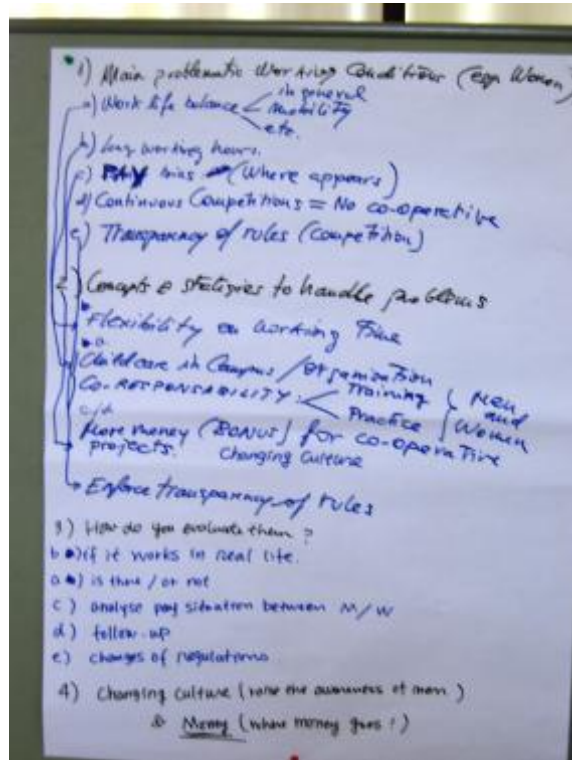 1) Main problematic Working Conditions (esp. Women)
a) Work life balance in general
mobility
etc.
b) Long working hours.
c) PAY bias (Where appears)
d) Continuous Competitions = No co-operative
e) Transparency of rules (Competition)
2) Concepts & stategies to handle problems
b
Flexibility on working Time
a
Childcare in Campus / Organisation
CO-RESPONSABILITY: Training Men
Practice and
Women
c/d
More money (BONUS) for co-operative
projects. Changing Culture
Enforce transparency of rules
3) How do you evaluate them?
b) if it works in real life.
a) is there / or not
c) analyse pay situation between M/W
d) follow-up
e) changes of regulations
4) Changing culture (raise the awareness of men)
& Money (where money goes?)